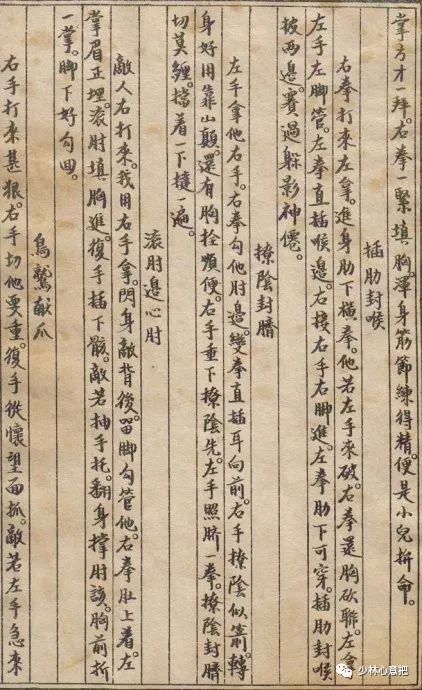 掌方才一拜。右拳一緊填胸。渾身筋節練得精。便是小兒拚命。
插肋封喉
右拳打來左拿。進身肋下橫拳。他若左手來破。右拳還胸砍聯。左合
左手左脚管。左拳直插喉邊。右接右手右脚進。左拳肋下可穿。插肋封喉
披兩邊。賽過躲影神僊。
撩陰封臍
左手拿他右手。右拳勾他肘邊。變拳直插耳向前。右手撩陰似箭。轉
身好用靠山顛。還有胸拴順便。右手垂下撩陰先。左手照臍一拳。撩陰封臍
切莫纏。擋着一下撻一遍。
滚肘邊心肘
敵人右打來。我用右手拿。閃身敵背後。畄脚勾管他。右拳肚上着。左
掌眉正埋。滚肘填胸進。復手插下骸。敵若抽手托。翻身撑肘該。胸前折
一掌。脚下好勾回。
烏鷲献爪
右手打來甚狠。右手切他要重。復手從懷望面抓。敵若左手急來
少林心意把